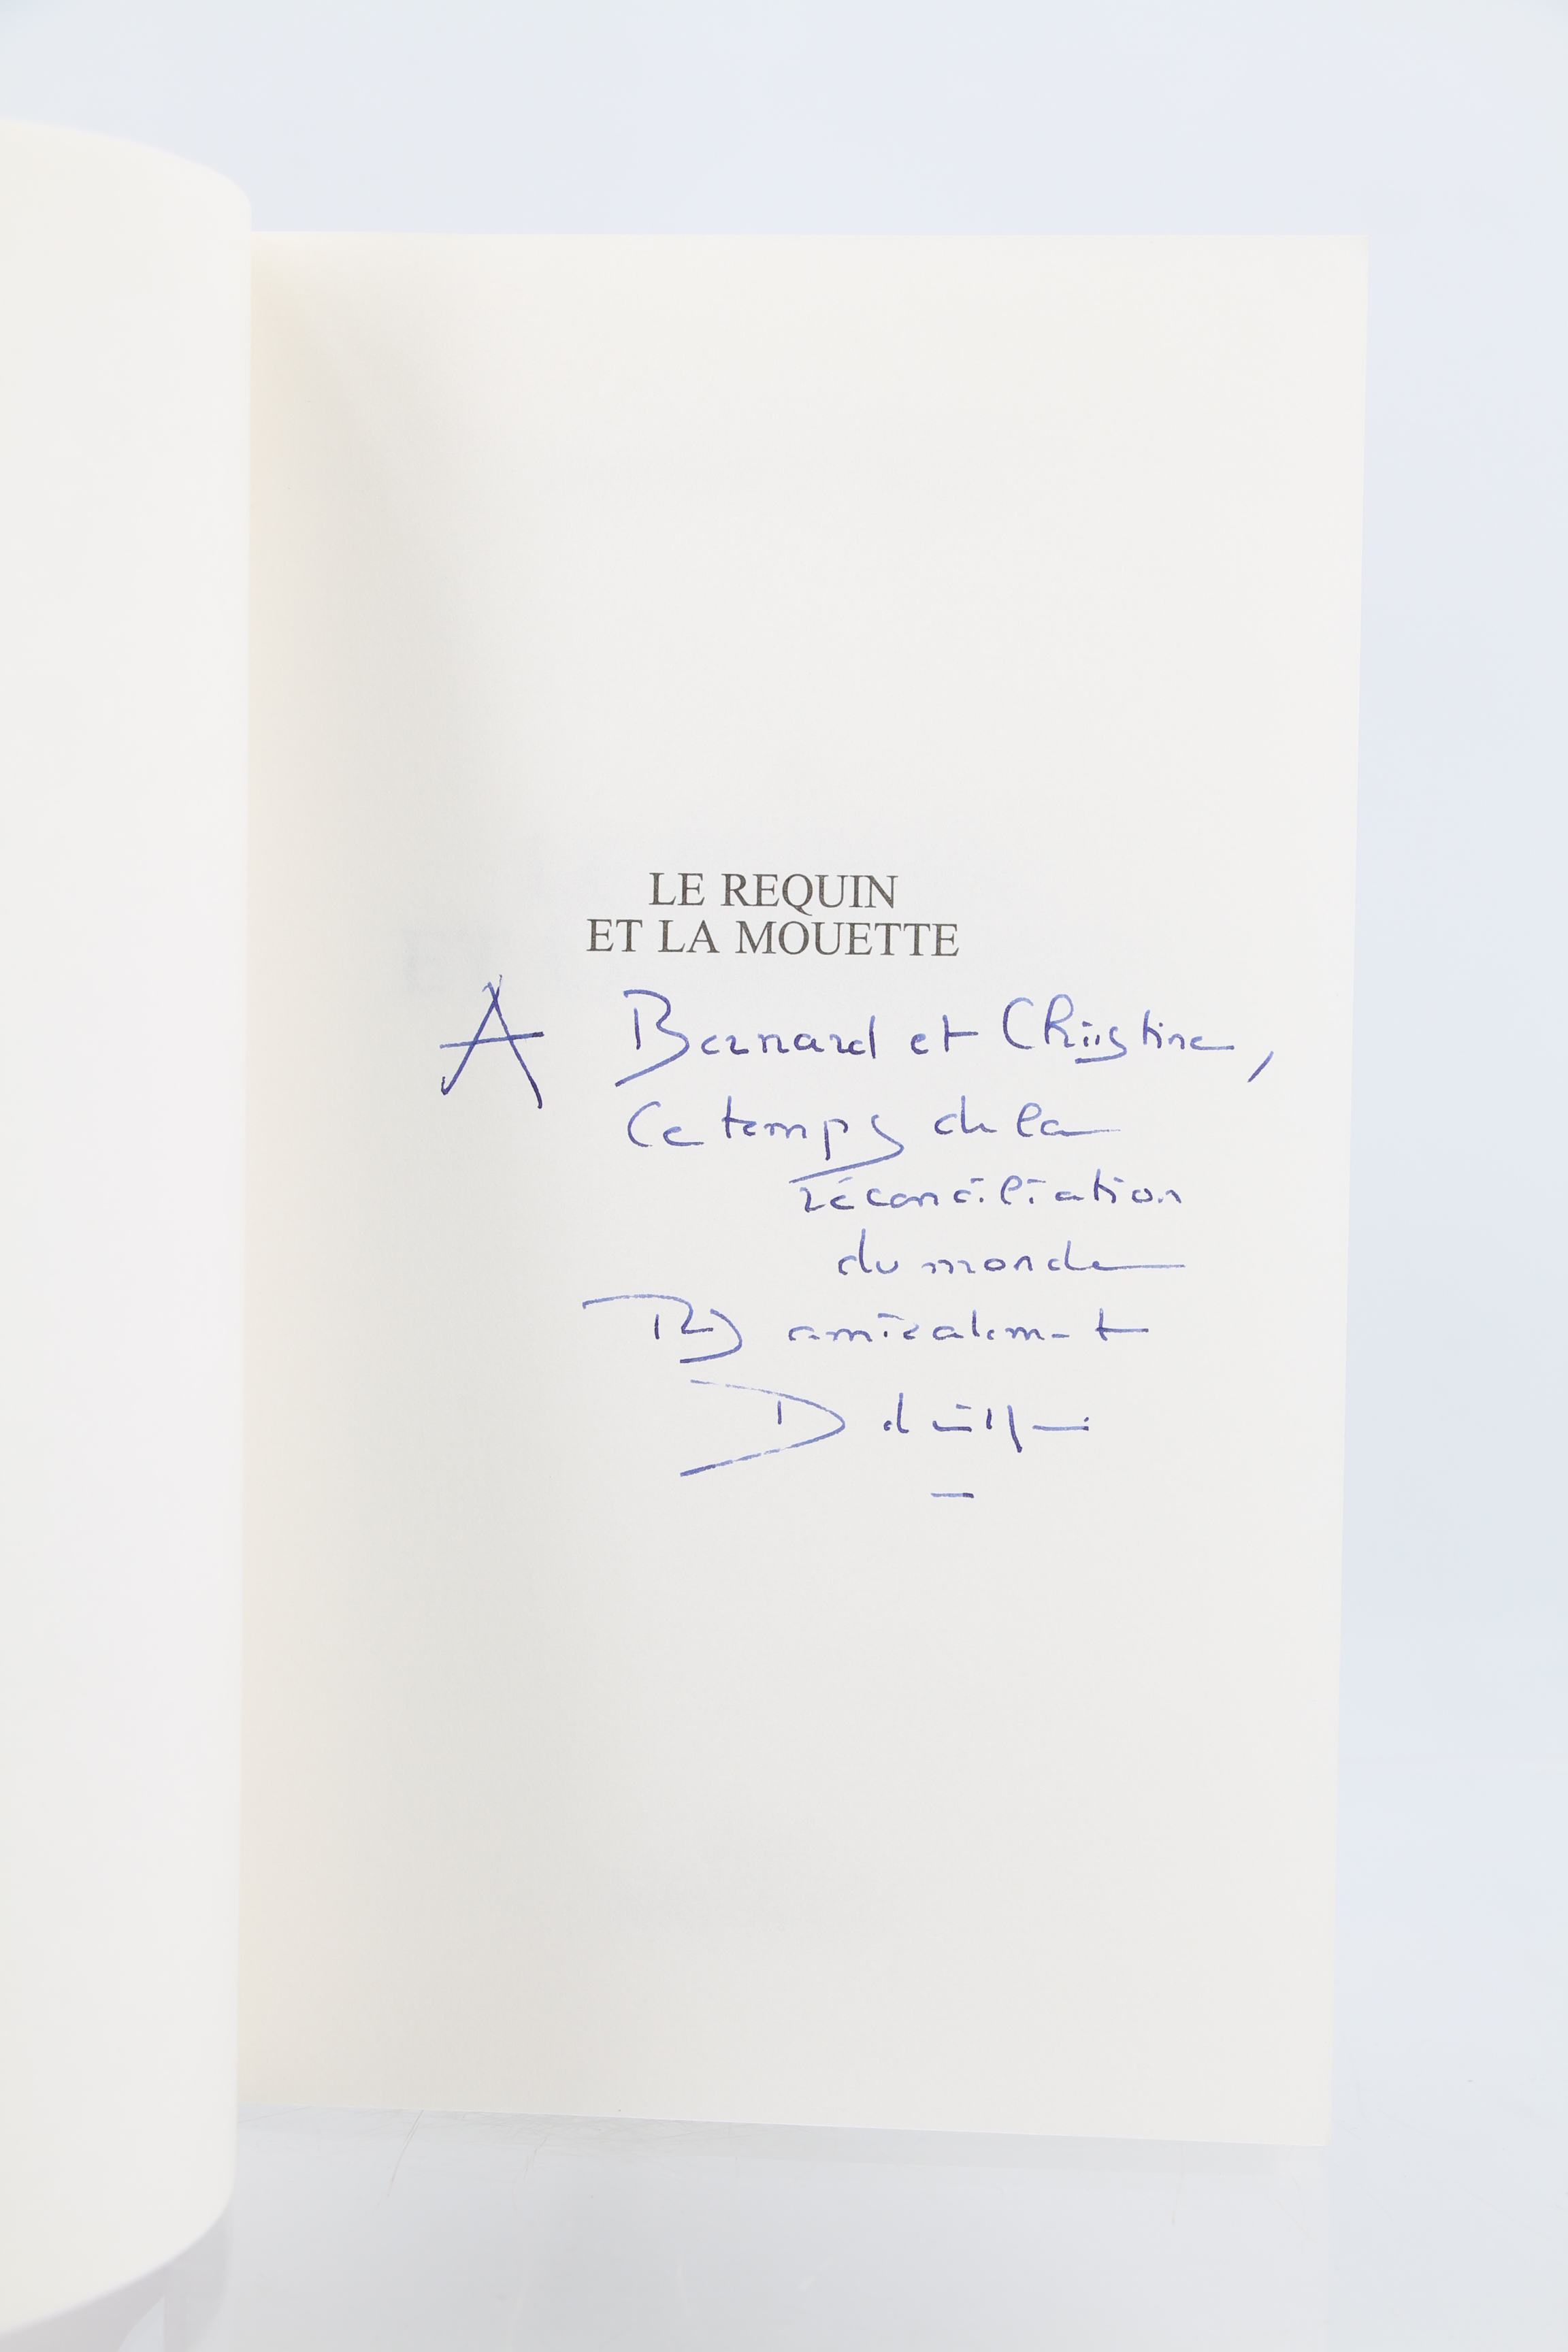 LE REQUIN
ET LA MOUETTE
A Bernard et Christine,
Ce temps de la
réconciliation
du monde
amicalement